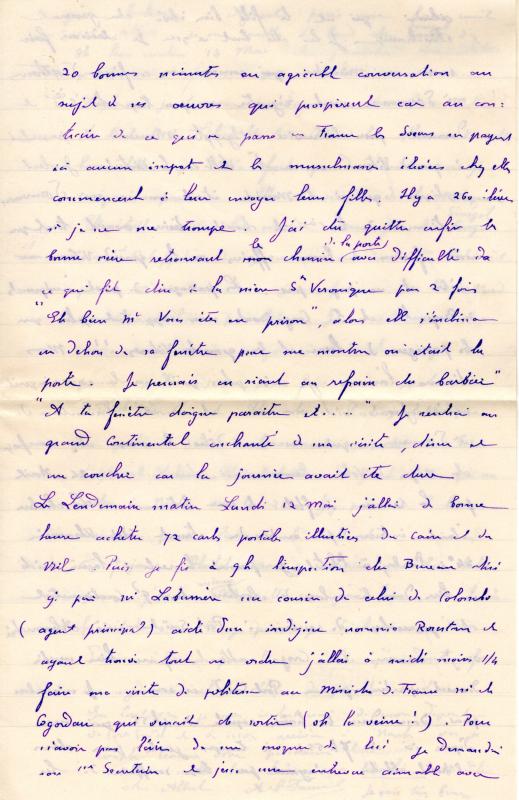 20 bonnes minutes en agréable conversation au
sujet de ses œuvres qui prospèrent car au con-
traire de ce qui se passe en France les Soeurs ne payent
ici aucun impot et les musulmans élevées chez elles
commencent à leur envoyer leurs filles. Il y a 260 élèves
si je ne me trompe. J'ai dû quitter enfin la
bonne mère retrouvant le mon chemin de la porte avec difficulté
ce qui fit dire à la mère Ste Véronique par 2 fois
"Eh bien Mr Vous êtes en prison", alors elle s'inclina
en dehors de sa fenêtre pour me montrer où était la
porte. Je pensais en riant au refrain du barbier"
"A ta fenêtre daigne paraitre et....." Je rentrai au
grand Continental enchanté de ma visite, diner et
me coucher car la journée avait été dure
Le Lendemain matin Lundi 12 Mai j'allai de bonne
heure acheter 72 cartes postales illustrées du Caire et du
Nil. Puis je fis à 9h l'inspection du Bureau
géré par Mr Labussière un cousin de celui de Colombo
(agent principal) aidé d'un indigène nommé Roustan et
ayant trouvé tout en ordre j'allai à midi moins 1/4
faire une visite de politesse au Ministre de France Mr de
Cogordan qui venait de sortir (oh la veine!). Pour
n'avoir pas l'air de me moquer de lui je demandai
son 1er Secrétaire et j'eus une entrevue aimable avec